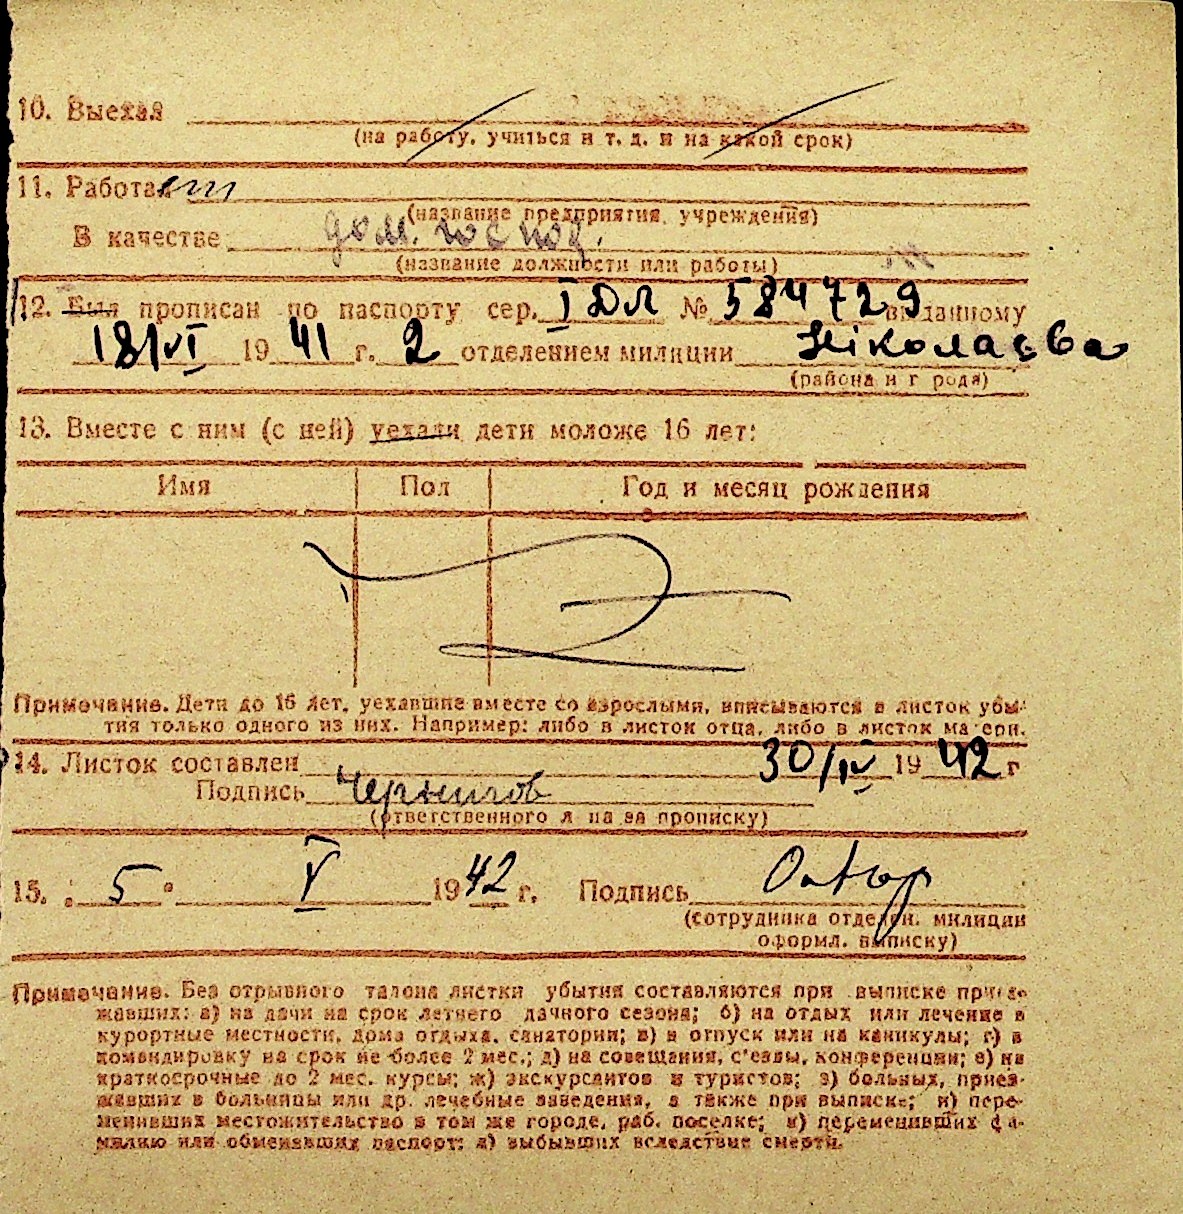 10. Выехал
(на работу, учиться и т. д. и на какой срок)
11. Работает
(название предприятия, учреждения)
В качестве дом. господ.
(название должности или работы)
12. Был прописан по паспорту сер. I ДЛ № 584729 выданному
18/VI 1941 г. 2 отделением милиции Ніколаєва
(района и города)
13. Вместе с ним (с ней) уехали дети моложе 16 лет:
Имя Пол Год и месяц рождения
Примечание. Дети до 16 лет, уехавшие вместе со взрослыми, вписываются в листок убы-
тия только одного из них. Например: либо в листок отца, либо в листок матери.
14. Листок составлен 30/IV 1942 г
Подпись Чернигов
(ответственного лица за прописку)
15. " 5 " V 1942 г. Подпись
(сотрудника отделен. милиции
оформл. выписку)
Примечание. Без отрывного талона листки убытия составляются при выписке приез-
жавших: а) на дачи на срок летнего дачного сезона; б) на отдых или лечение в
курортные местности, дома отдыха, санатории; в) в отпуск или на каникулы; г) в
командировку на срок не более 2 мес.; д) на совещания, с'езды, конференции; е) на
краткосрочные до 2 мес. курсы; ж) экскурсантов и туристов; з) больных, приез-
жавших в больницы или др. лечебные заведения, а также при выписке; и) пере-
менивших местожительство в том же городе, раб. поселке; к) переменивших фа-
милию или обменявших паспорт; л) выбывших вследствие смерти.